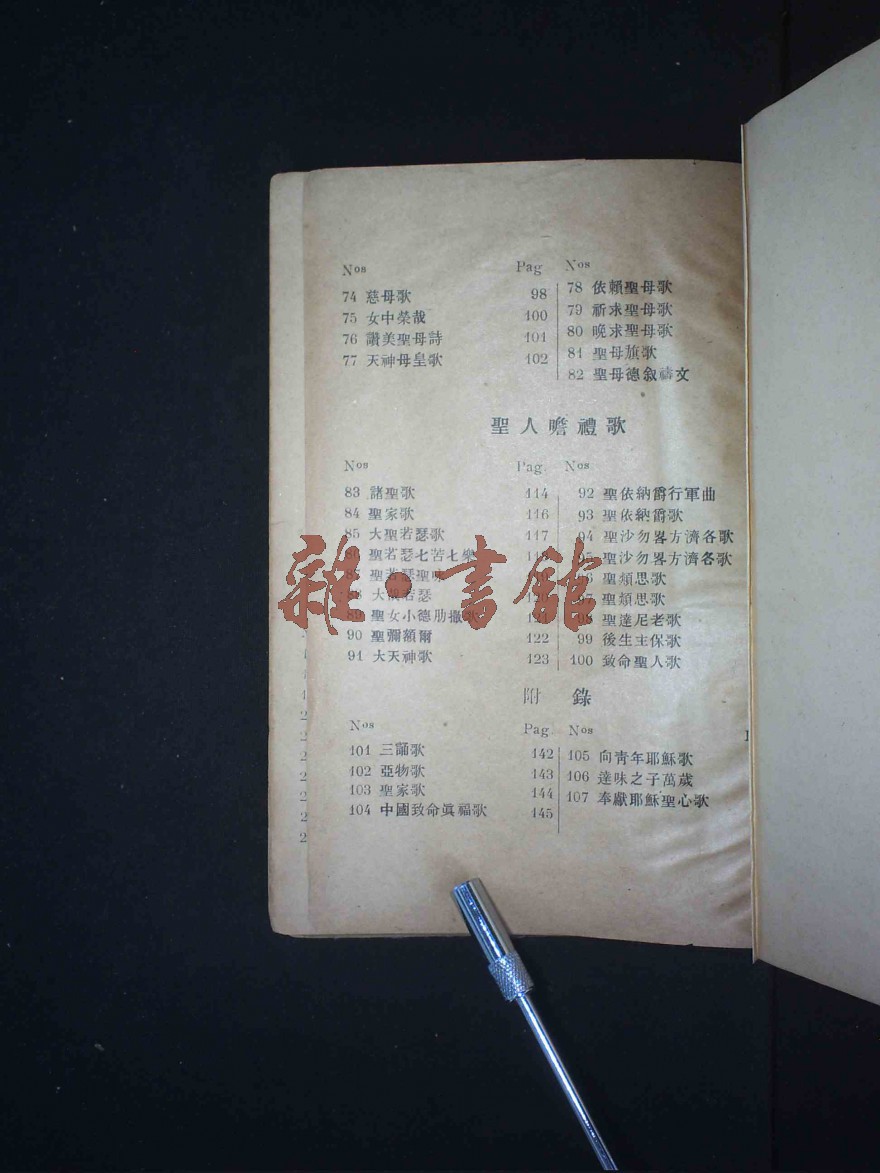 Nos Pag Nos
74 慈母歌 98
75 女中榮哉 100
76 讚美聖母詩 101
77 天神母皇歌 102
78 依賴聖母歌
79 祈求聖母歌
80 晚求聖母歌
81 聖母旗歌
82 聖母德叙禱文
聖人瞻禮歌
Nos Pag Nos
83 諸聖歌 114
84 聖家歌 116
85 大聖若瑟歌 117
聖若瑟七苦七樂
聖若瑟聖
大 若瑟
89 聖女小德肋撒歌 121
90 聖彌額爾 122
91 大天神歌 123
92 聖依納爵行軍曲
93 聖依納爵歌
94 聖沙勿畧方濟各歌
95 聖沙勿畧方濟各歌
聖類思歌
97 聖類思歌
98 聖達尼老歌
99 後生主保歌
100 致命聖人歌
附錄
Nos Pag Nos
101 三誦歌 142
102 亞物歌 143
103 聖家歌 144
104 中國致命眞福歌 145
105 向青年耶穌歌
106 達味之子萬歲
107 奉獻耶穌聖心歌
雜·書館